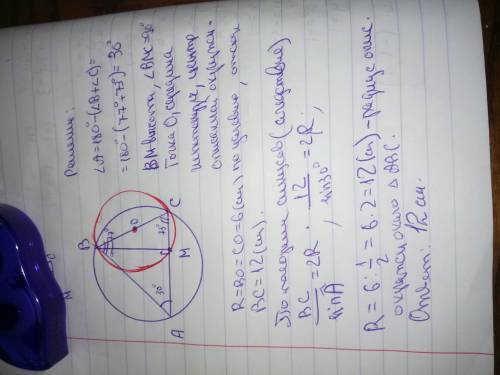 Решение:
∠A=180°-(∠B+∠C)=
=180°-(77°+73°)=30°
BM-высота, ∠BMC=90°
Точка O, середина
гипотенузы, центр
описанной окружн.
R=BO=CO=6(см) по условию, отсюда
BC=12(см).
По теореме синусов (следствие)
BC/sinA=2R, 12/sin30°=2R,
R=6:1/2=6·2=12(см)-радиус опис.
окружн около △ABC.
Ответ: 12 см.
B
77°
O
C
73°
M
30°
A
M
O